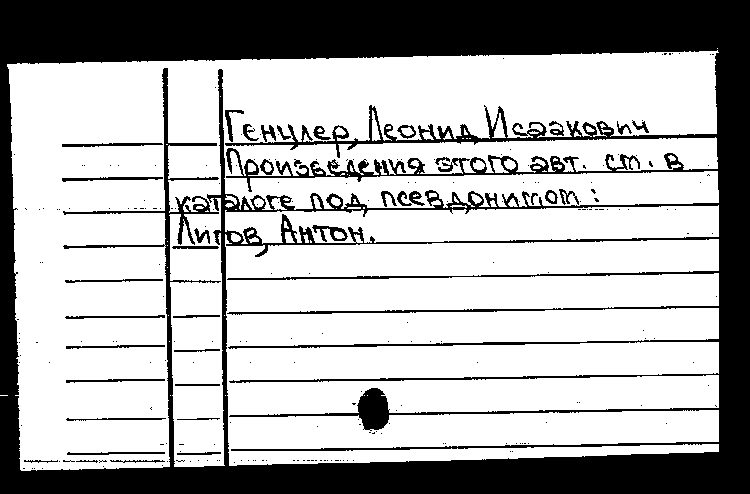 Генцлер, Леонид Исаакович
Произведения этого авт. см. в
каталоге под псевдонимом:
Лигов, Антон.